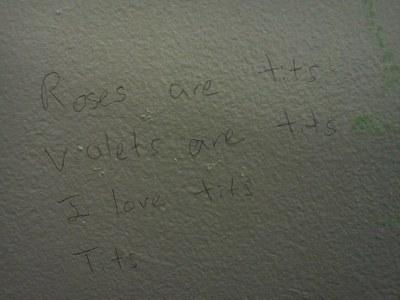 Roses are tits
Violets are tits
I love tits
Tits